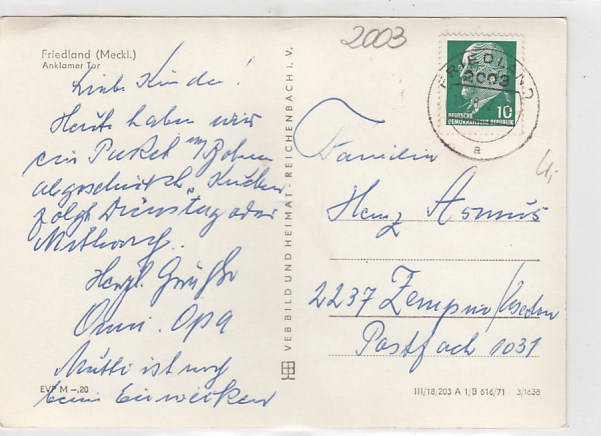 2003
Friedland (Meckl.)
Anklamer Tor
Liebe Kinder!
Heute haben wir
ein Paket m/Bohnen
abgeschickt, Kuchen
folgt Dienstag oder
Mittwoch.
Herzl. Grüße
Omi. Opa
Mutti ist noch
beim Einwecken
EVP M -,20
VEB BILD UND HEIMAT · REICHENBACH i. V.
FRIEDLAND
2003
a
10
DEUTSCHE
DEMOKRATISCHE REPUBLIK
Familie
Heinz Asmus
2237 Zempin/Usedom
Postfach 1031
III/18/203 A 1/B 616/71 3/1638